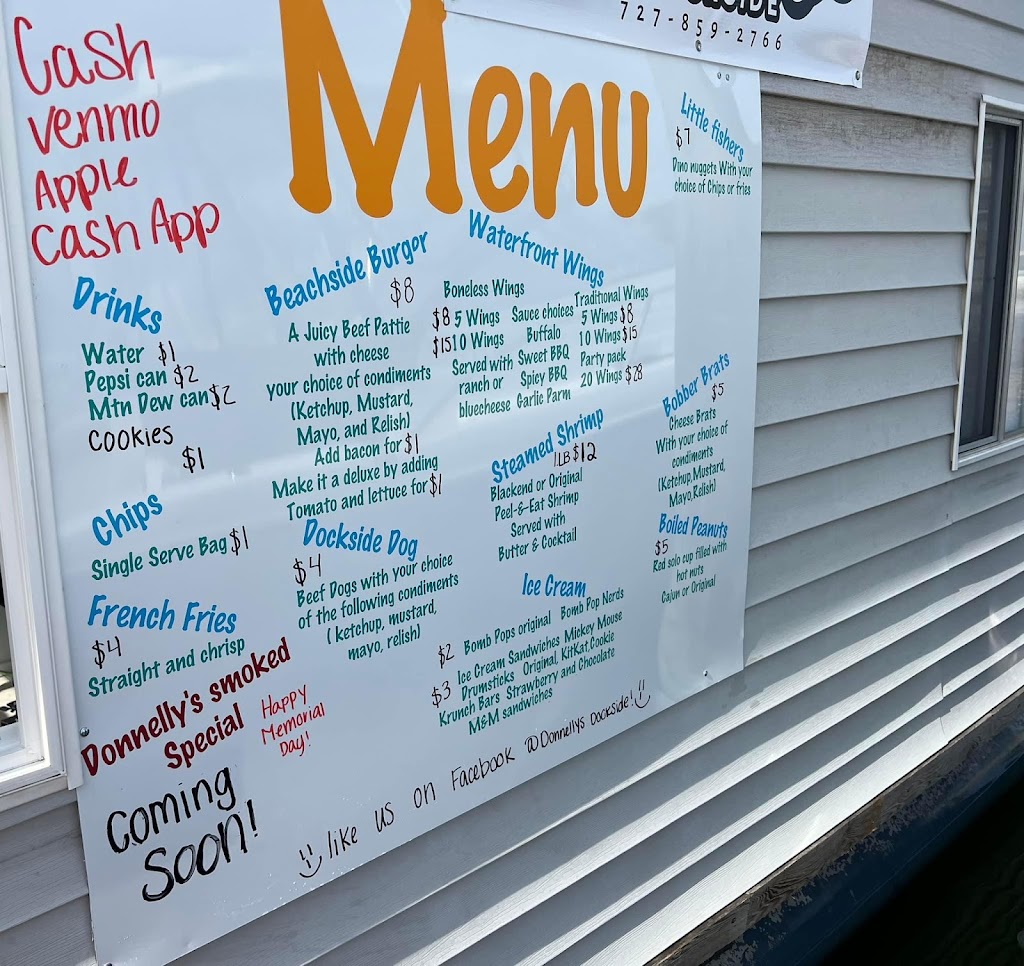 727-859-2766
Cash
venmo
Apple
Cash App
Menu
Drinks
Water $1
Pepsi can $2
Mtn Dew can $2
Cookies
$1
Chips
Single Serve Bag $1
French Fries
$4
Straight and chrisp
Donnelly's smoked
Special
Happy
Memorial
Day!
Coming
Soon!
Beachside Burger
$8
A Juicy Beef Pattie
with cheese
your choice of condiments
(Ketchup, Mustard,
Mayo, and Relish)
Add bacon for $1
Make it a deluxe by adding
Tomato and lettuce for $1
Dockside Dog
$4
Beef Dogs with your choice
of the following condiments
( ketchup, mustard,
mayo, relish)
Waterfront Wings
Boneless Wings
$8 5 Wings
$15 10 Wings
Served with
ranch or
bluecheese
Sauce choices
Buffalo
Sweet BBQ
Spicy BBQ
Garlic Parm
Traditional Wings
5 Wings $8
10 Wings $15
Party pack
20 Wings $28
Steamed Shrimp
1LB $12
Blackend or Original
Peel-&-Eat Shrimp
Served with
Butter & Cocktail
Ice Cream
$2 Bomb Pops original Bomb Pop Nerds
$3 Ice Cream Sandwiches Mickey Mouse
Drumsticks Original, KitKat, Cookie
Krunch Bars Strawberry and Chocolate
M&M sandwiches
Little fishers
$7
Dino nuggets With your
choice of Chips or fries
Bobber Brats
$5
Cheese Brats
With your choice of
condiments
(Ketchup, Mustard,
Mayo, Relish)
Boiled Peanuts
$5
Red solo cup filled with
hot nuts
Cajun or Original
like us on Facebook @Donnellys Dockside!